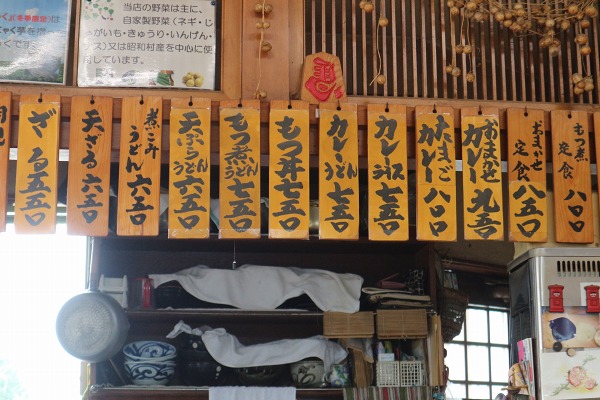 当店の野菜は主に、
自家製野菜(ネギ・じ
ゃがいも・きゅうり・いんげん・
ナス)又は昭和村産を中心に
使用しています。
ざる 五五〇
天ざる 六五〇
煮こみうどん 六五〇
天ぷらうどん 六五〇
もつ煮うどん 七五〇
もつ丼 七五〇
カレーうどん 七五〇
カレーライス 七五〇
たまごカレー 八〇〇
おまかせカレー 九五〇
おまかせ定食 八五〇
もつ煮定食 八〇〇